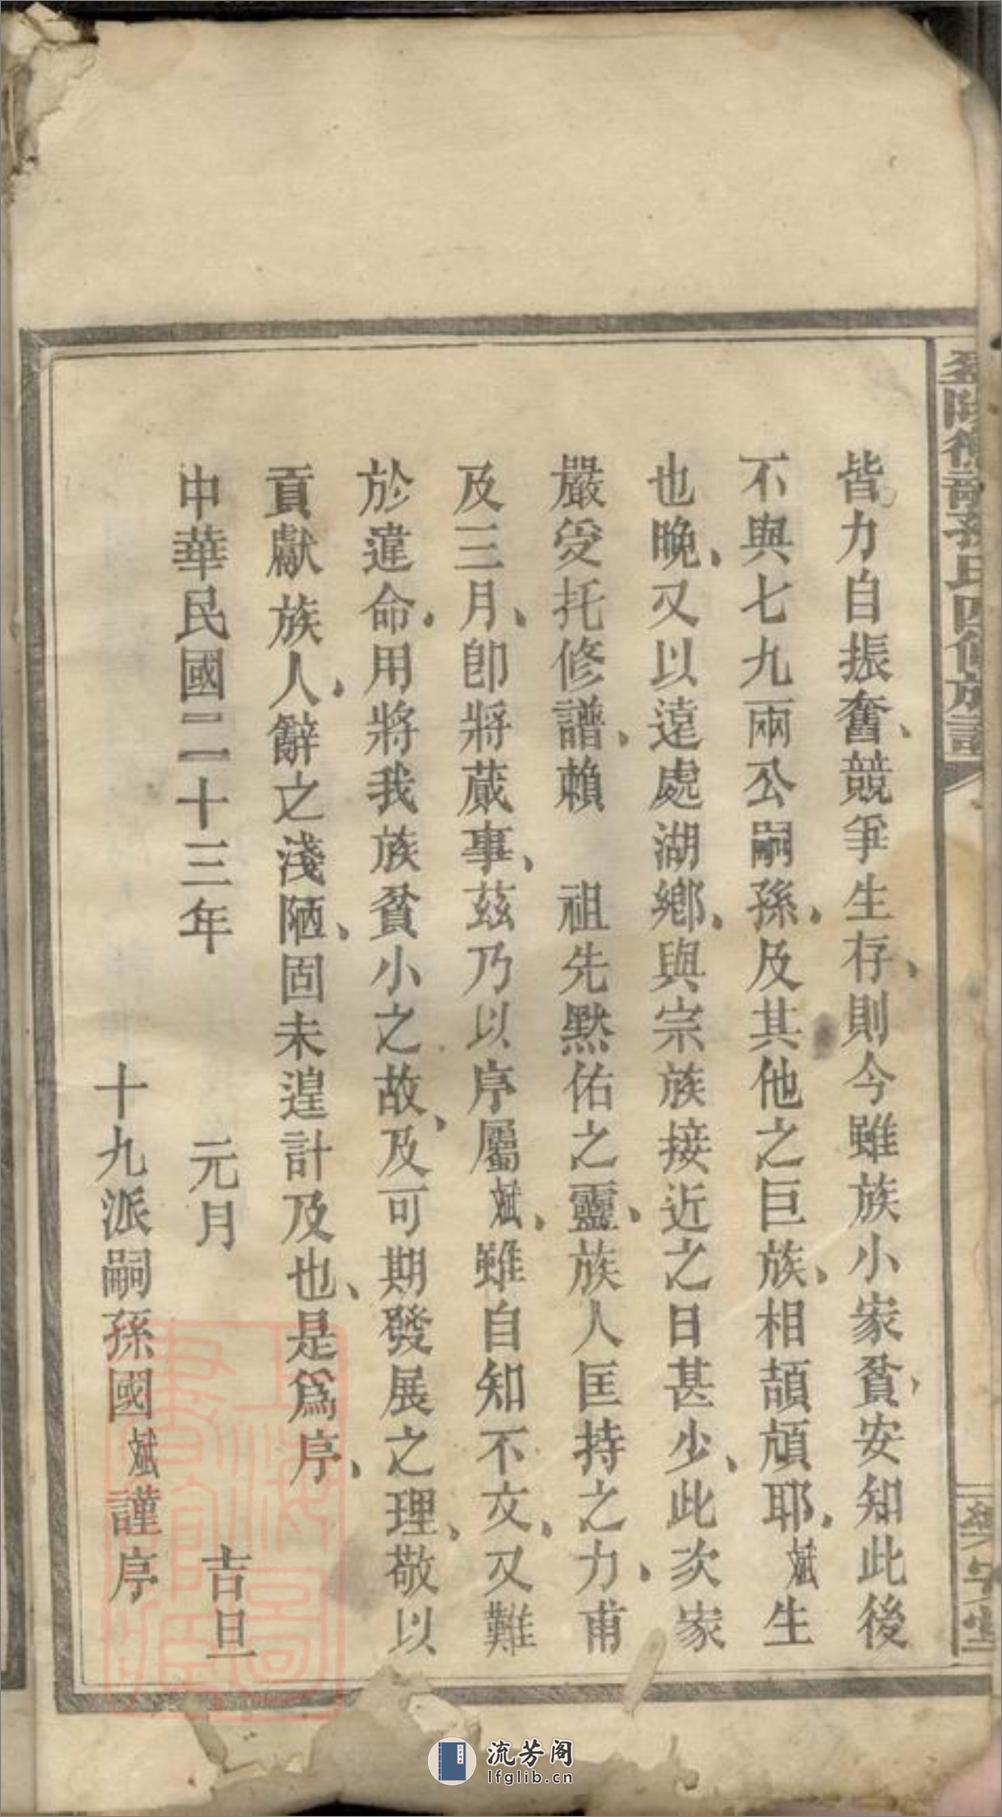 皆力自振奮、競爭生存、則今雖族小家貧、安知此後
不與七九兩公嗣孫、及其他之巨族、相頡頏耶、斌生
也晚、又以遠處湖鄉、與宗族接近之日甚少、此次家
嚴受托修譜、賴 祖先默佑之靈、族人匡持之力、甫
及三月、卽將蕆事、茲乃以序屬斌、雖自知不文、又難
於違命、用將我族貧小之故、及可期發展之理、敬以
貢獻族人、辭之淺陋、固未遑計及也、是爲序、
中華民國二十三年 元月 吉旦
十九派嗣孫國斌謹序
孫氏四修族譜
上海圖書館藏
流芳阁
lfglib.cn